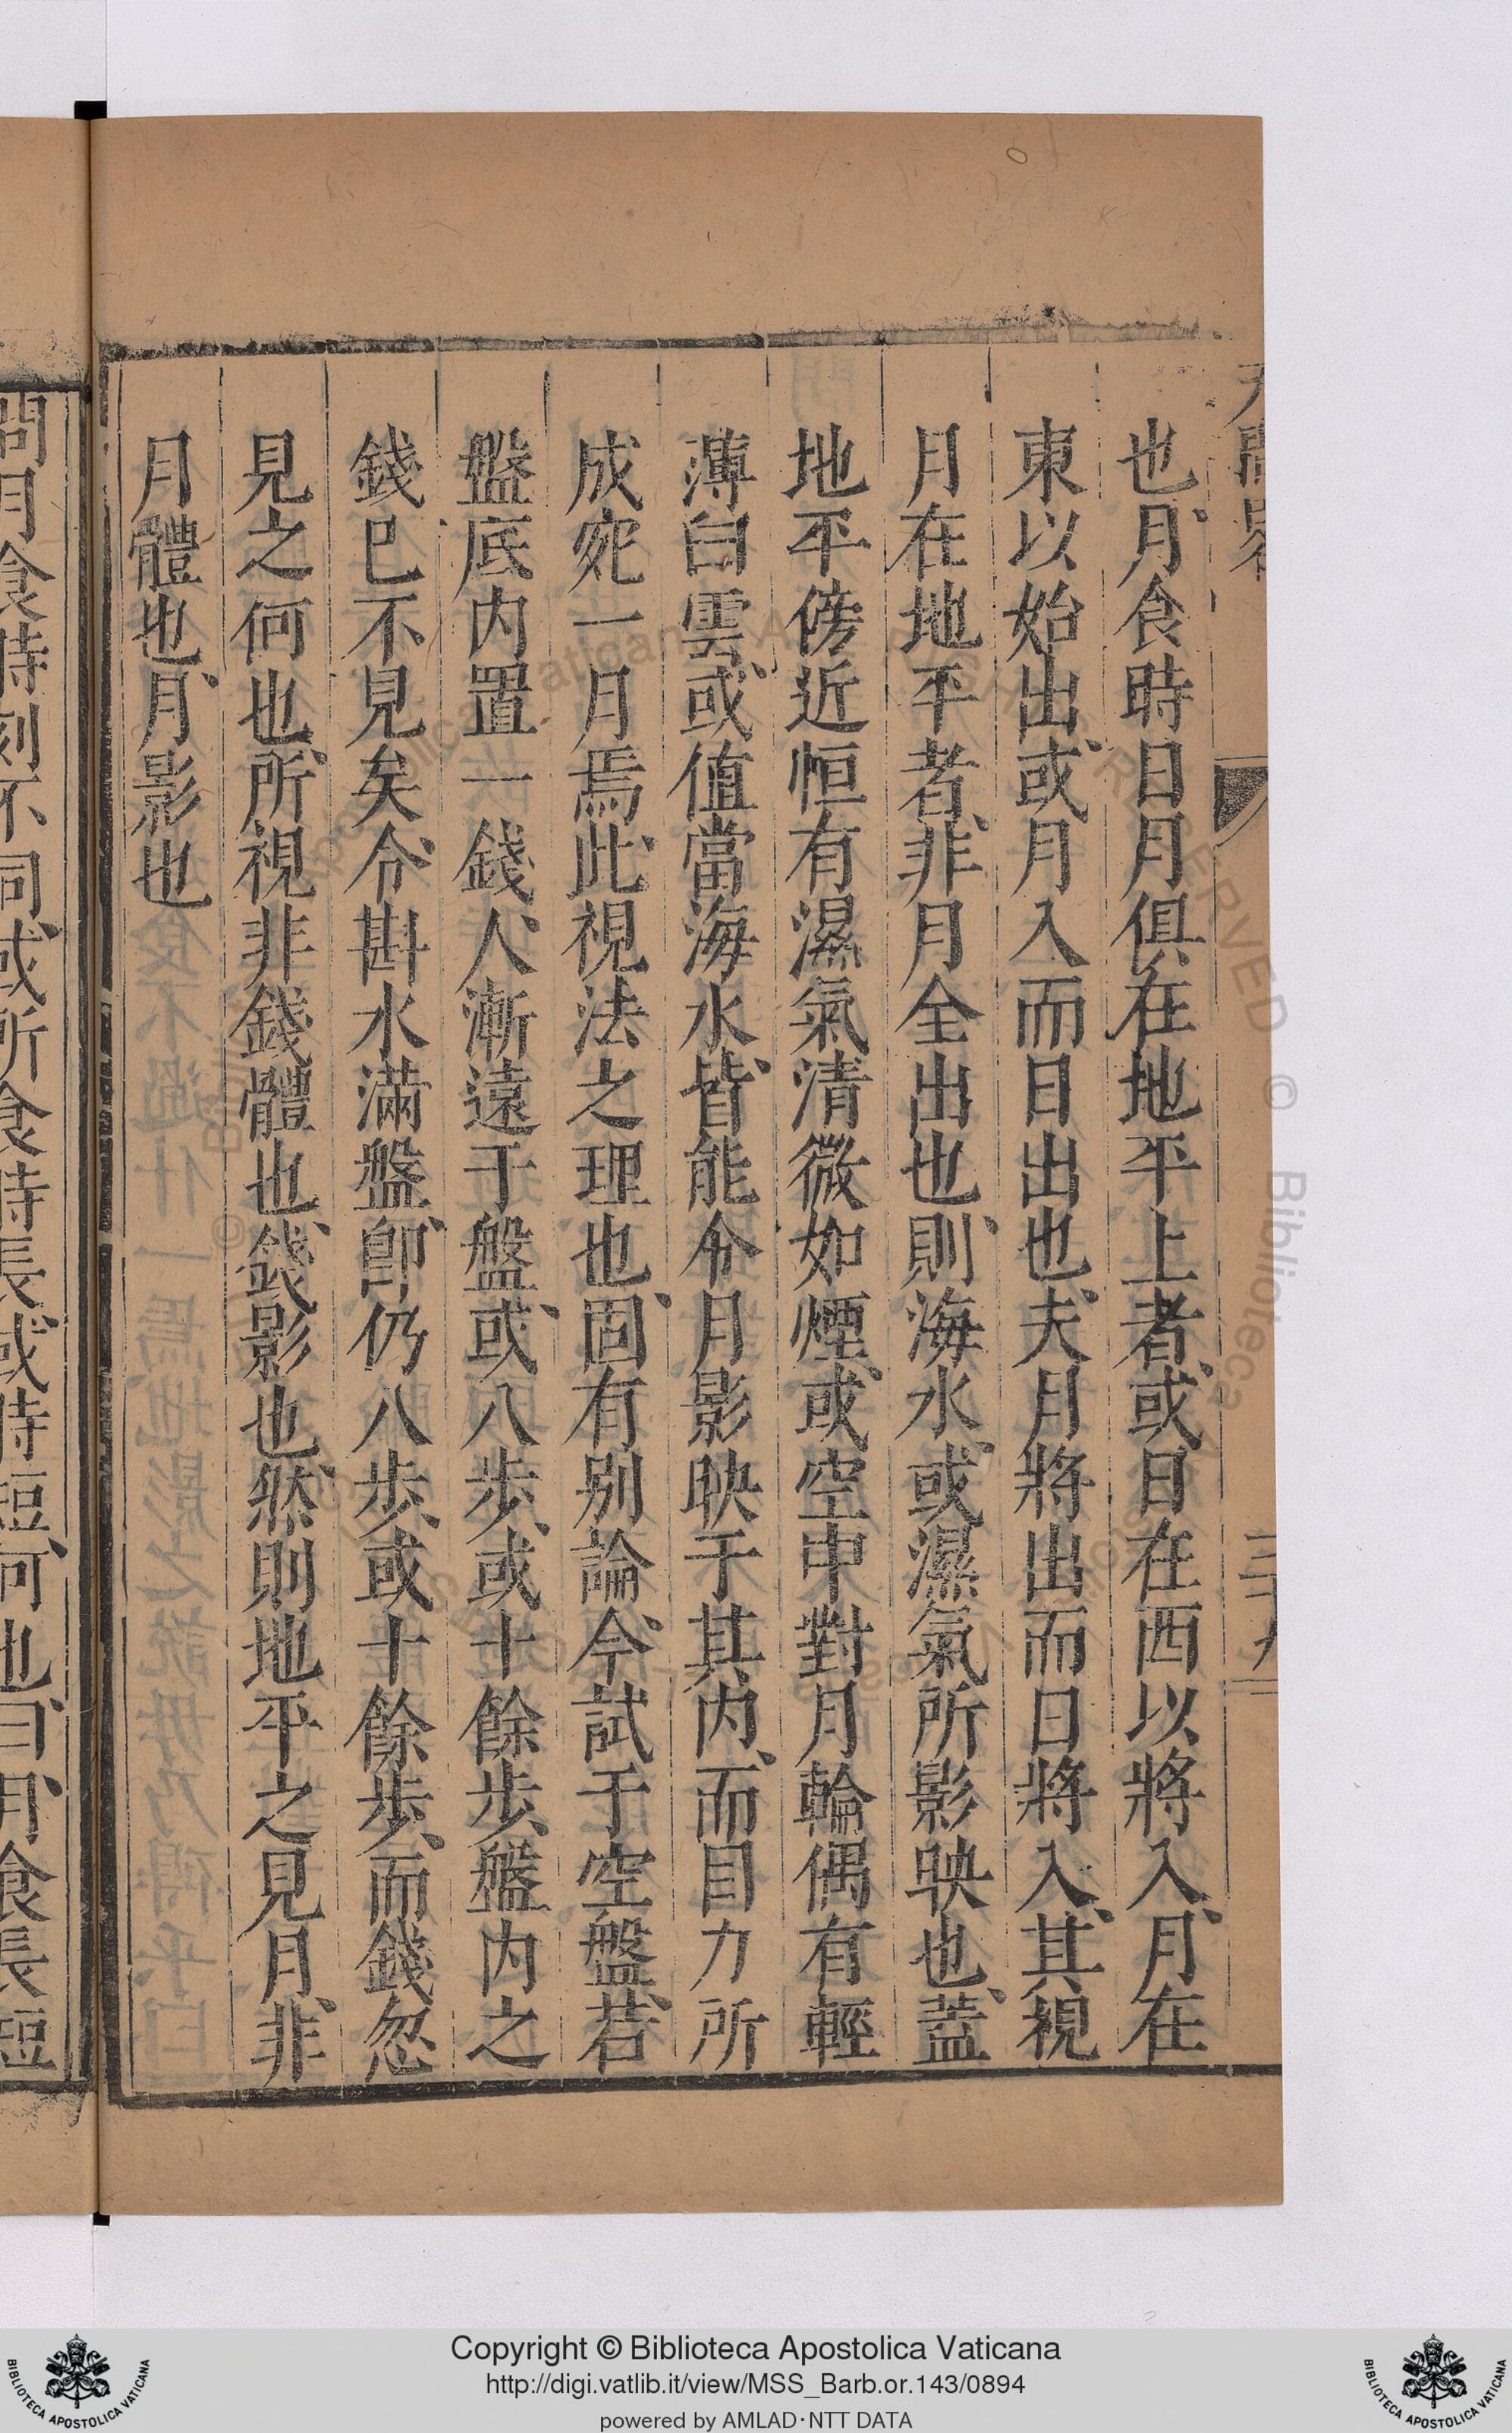 也、月食時日月俱在地平上者、或日在西以將入、月在
東以始出、或月入而日出也、夫月將出而日將入、其視
月在地平者、非月全出也、則海水、或濕氣所影映也、蓋
地平傍近恒有濕氣清微如煙、或空中對月輪偶有輕
薄白雲、或值當海水、皆能令月影映于其内、而目力所
成宛一月焉、此視法之理也、固有别論、今試于空盤、若
盤底内置一錢、人漸遠于盤、或八步、或十餘步、盤内之
錢巳不見矣、令斟水滿盤、卽仍八步、或十餘步、而錢忽
見之何也、所視非錢體也、錢影也、然則地平之見月、非
月體也、月影也
問月食時刻不同、或所食時長、或時短、何也、曰、月食長短
Copyright © Biblioteca Apostolica Vaticana
http://digi.vatlib.it/view/MSS_Barb.or.143/0894
powered by AMLAD·NTT DATA
BIBLIOTECA APOSTOLICA VATICANA
BIBLIOTECA APOSTOLICA VATICANA